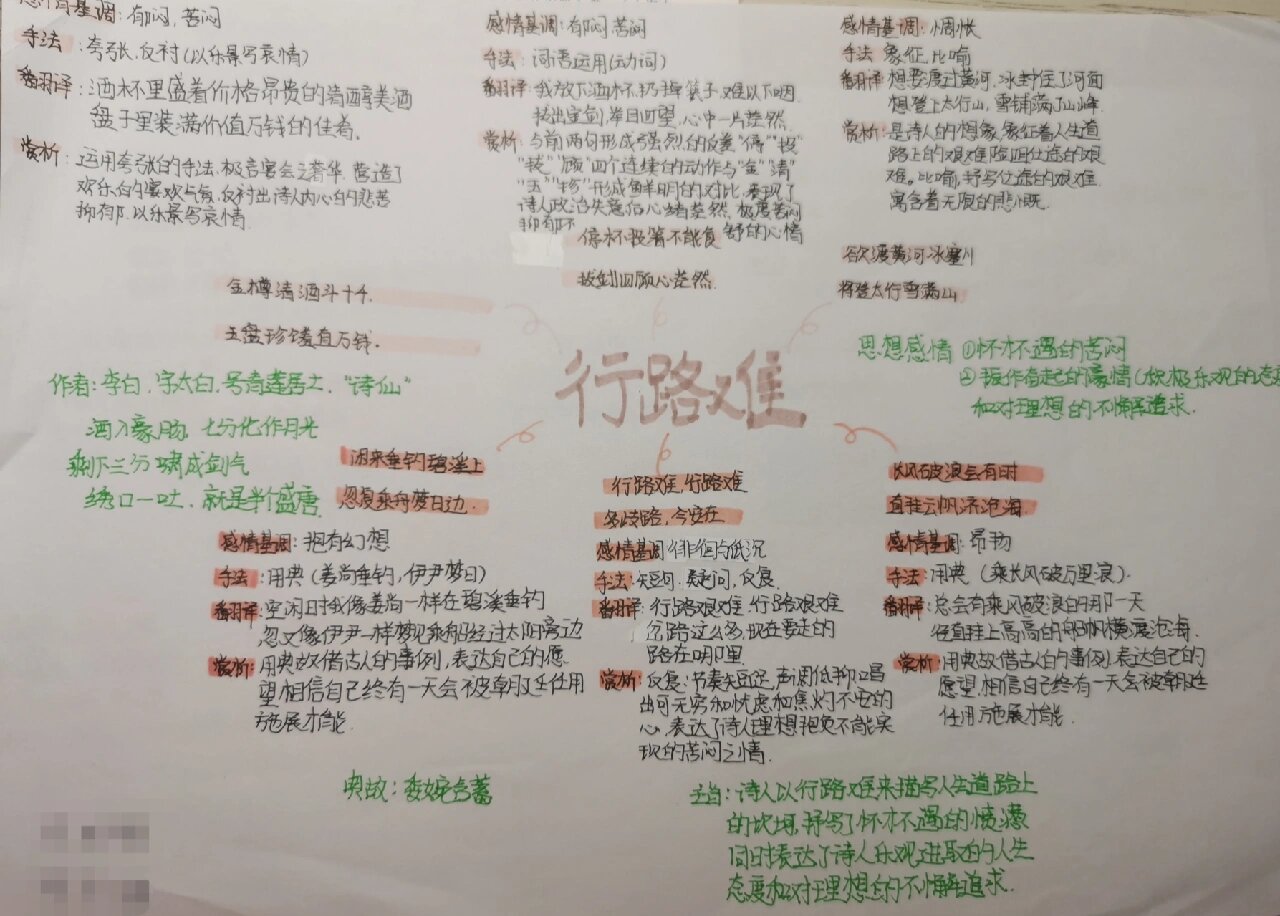 感情基调：郁闷，苦闷
手法：夸张，反衬（以乐景写哀情）
翻译：酒杯里盛着价格昂贵的清醇美酒
盘子里装满价值万钱的佳肴.
赏析：运用夸张的手法，极言宴会之奢华，营造了
欢乐的宴欢气氛，反衬出诗人内心的悲苦
抑郁，以乐景写哀情.
金樽清酒斗十千.
玉盘珍馐直万钱.
感情基调：郁闷苦闷
手法：词语运用（动词）
翻译：我放下酒杯，扔掉筷子，难以下咽
拔出宝剑，举目四望，心中一片茫然.
赏析：与前两句形成强烈的反差"停""投"
"拔""顾"四个连续的动作与"金""清"
"玉""珍"形成鲜明的对比，表现了
诗人政治失意后心绪茫然，极度苦闷
抑郁不舒的心情
停杯投箸不能食
拔剑四顾心茫然
感情基调：惆怅
手法：象征，比喻
翻译：想要渡过黄河，冰封住了河面
想登上太行山，雪铺满了山峰
赏析：是诗人的想象，象征着人生道
路上的艰难险阻仕途的艰
难。比喻，抒写仕途的艰难
寓含着无限的悲慨.
欲渡黄河冰塞川
将登太行雪满山
行路难
思想感情 ①怀才不遇的苦闷
②振作奋起的豪情（积极乐观的态
和对理想的不懈追求.
作者：李白.字太白.号青莲居士."诗仙"
酒入豪肠，七分化作月光
剩下三分啸成剑气
绣口一吐，就是半个盛唐
闲来垂钓碧溪上
忽复乘舟梦日边.
感情基调：抱有幻想
手法：用典（姜尚垂钓，伊尹梦日）
翻译：空闲时我像姜尚一样在碧溪垂钓
忽又像伊尹一样梦见乘船经过太阳旁边
赏析：用典故借古人的事例，表达自己的愿
望，相信自己终有一天会被朝廷任用
施展才能.
行路难，行路难
多歧路，今安在
感情基调：徘徊与低沉
手法：短句.疑问，反复
翻译：行路艰难，行路艰难
岔路这么多，现在要走的
路在哪里
赏析：反复：节奏短促，声调低抑，唱
出可无穷和忧虑和焦灼不安的
心，表达了诗人理想抱负不能实
现的苦闷之情.
长风破浪会有时
直挂云帆济沧海.
感情基调：昂扬
手法：用典（乘长风破万里浪）.
翻译：总会有乘风破浪的那一天
径直挂上高高的船帆横渡沧海.
赏析：用典故借古人的事例，表达自己的
愿望，相信自己终有一天会被朝廷
任用施展才能.
典故：委婉含蓄
主旨：诗人以行路难来描写人生道路上
的坎坷，抒写了怀才不遇的愤懑
同时表达了诗人乐观进取的人生
态度和对理想的不懈追求.